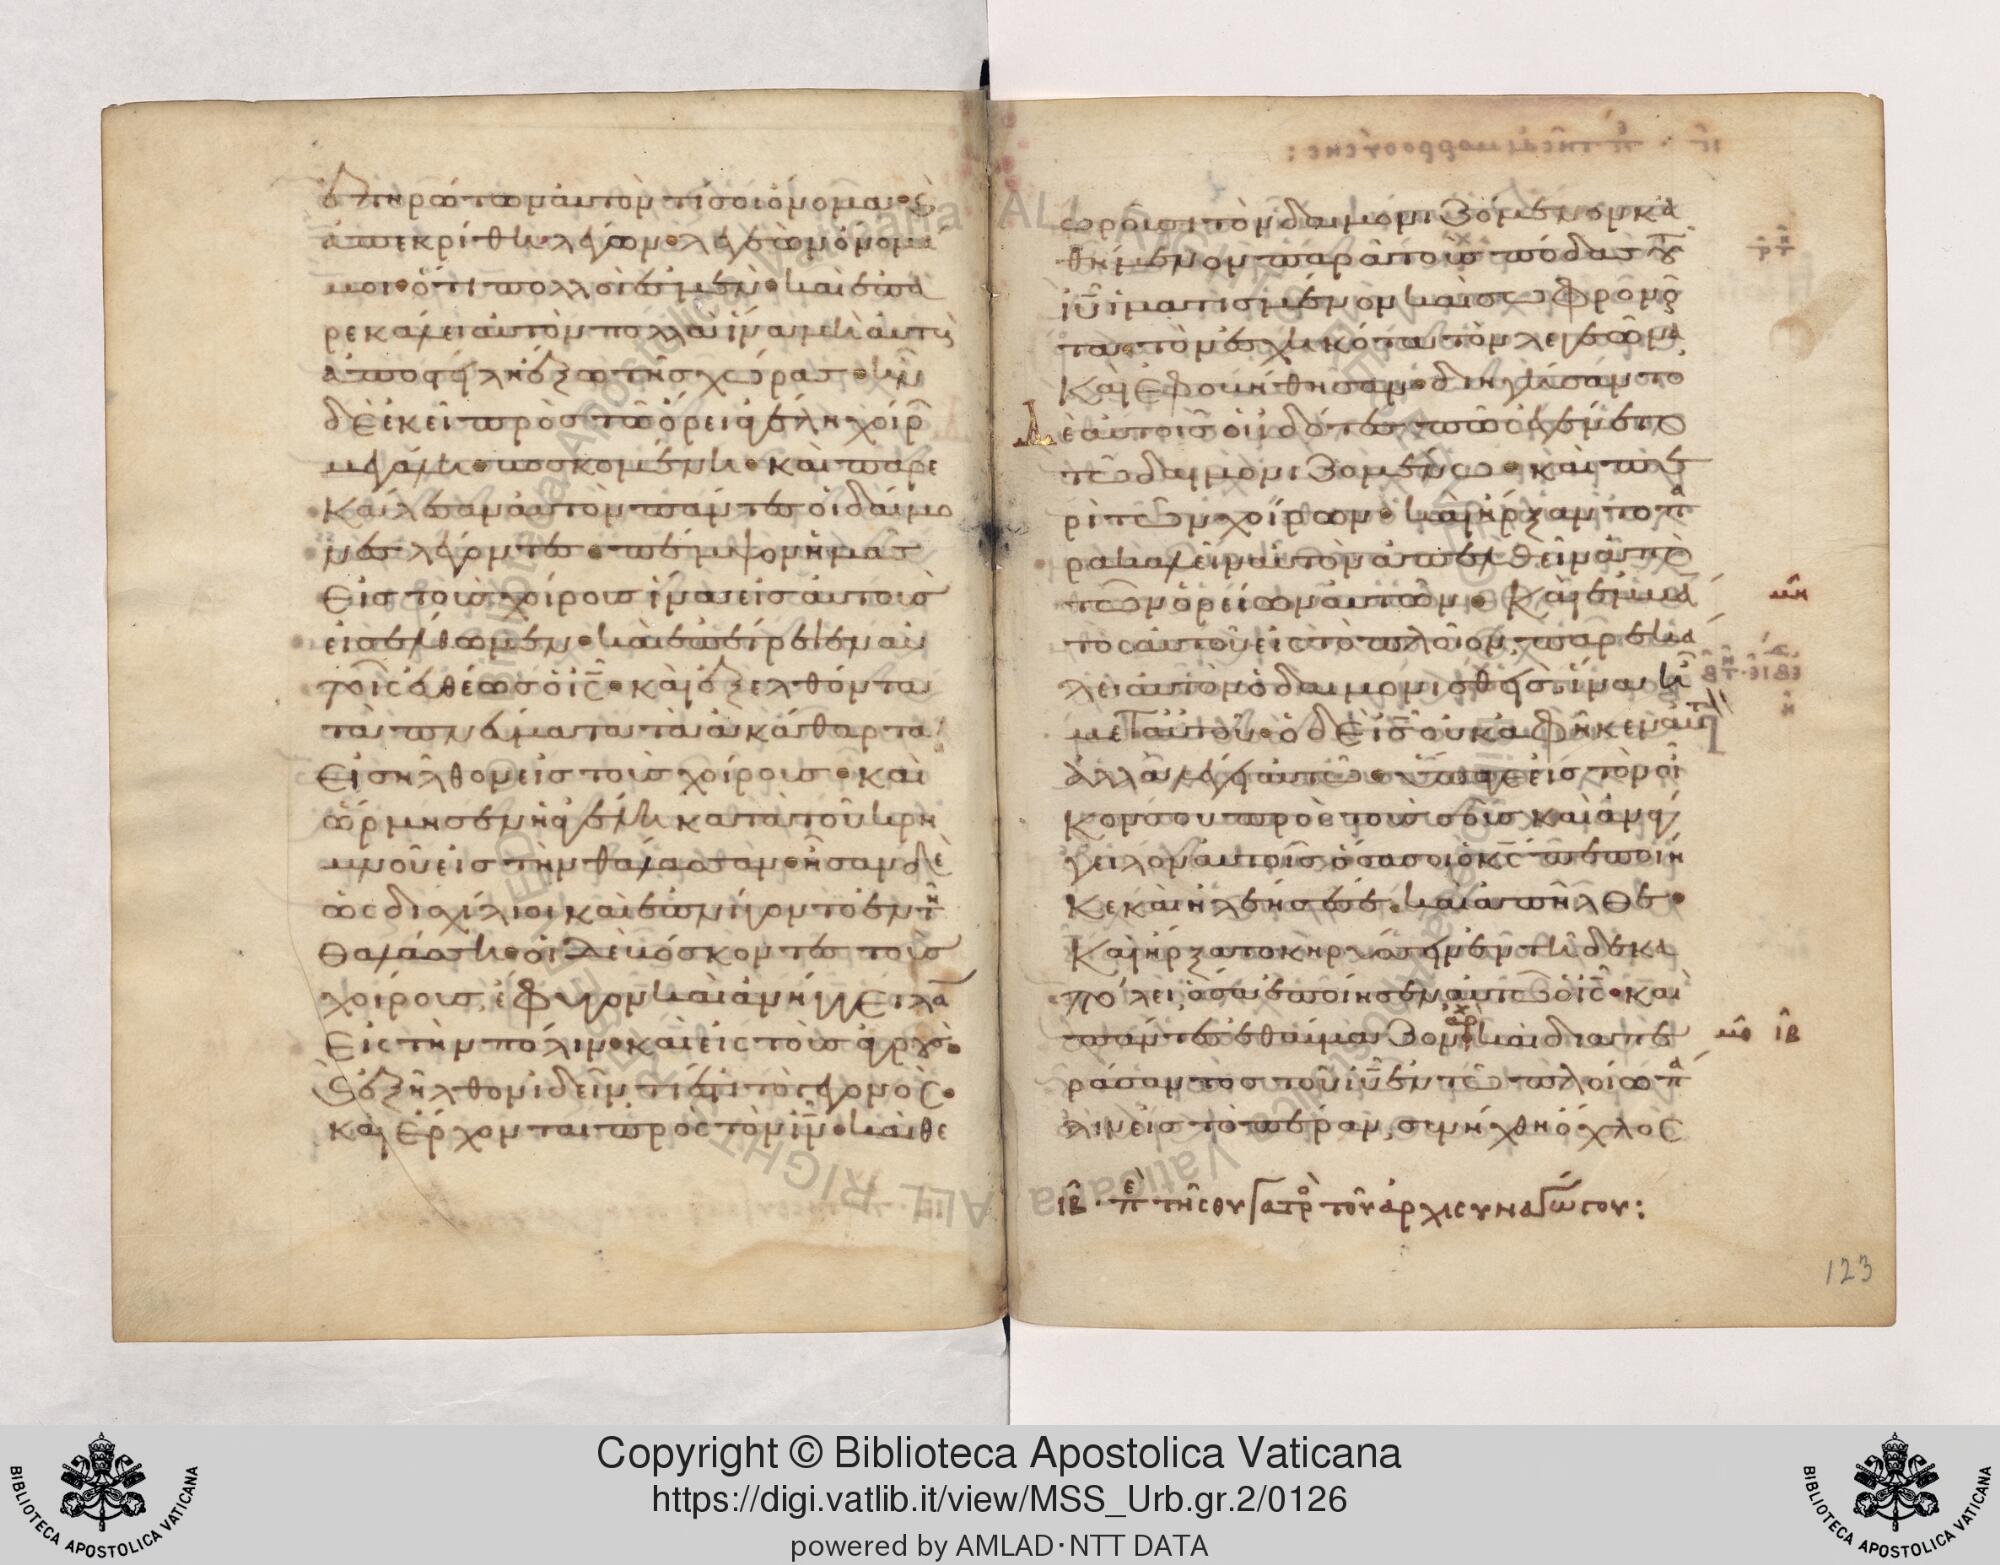 ἐπηρώτων αὐτὸν τί σοι ὄνομα· καὶ
ἀπεκρίθη λέγων· λεγεὼν ὄνομά
μοι· ὅτι πολλοί ἐσμεν· καὶ παρε
δὲ ἐκεῖ πρὸς τῷ ὄρει ἀγέλη χοίρων
μεγάλη βοσκομένη· καὶ παρε
κάλεσαν αὐτὸν πάντες οἱ δαίμο
νες λέγοντες· πέμψον ἡμᾶς
εἰς τοὺς χοίρους ἵνα εἰς αὐτοὺς
εἰσέλθωμεν· καὶ ἐπέτρεψεν αὐ
τοῖς εὐθέως ὁ ις̅· καὶ ἐξελθόντα
τὰ πνεύματα τὰ ἀκάθαρτα
εἰσῆλθον εἰς τοὺς χοίρους· καὶ
ὥρμησεν ἡ ἀγέλη κατὰ τοῦ κρη
μνοῦ εἰς τὴν θάλασσαν· ἦσαν δὲ
ὡς δισχίλιοι καὶ ἐπνίγοντο ἐν τῇ
θαλάσσῃ· οἱ δὲ βόσκοντες τοὺς
χοίρους, ἔφυγον καὶ ἀνήγγειλαν
εἰς τὴν πόλιν· καὶ εἰς τοὺς ἀγρούς·
ἐξῆλθον ἰδεῖν τί ἐστι τὸ γεγονός·
καὶ ἔρχονται πρὸς τὸν ιν̅· καὶ θε
ωροῦσι τὸν δαιμονιζόμενον κα
θήμενον παρὰ τοὺς πόδας τοῦ
ιυ̅ ἱματισμένον καὶ σωφρονοῦν
τα· τὸν ἐσχηκότα τὸν λεγεῶνα
καὶ ἐφοβήθησαν· διηγήσαντο
δὲ αὐτοῖς οἱ ἰδόντες πῶς ἐγένετο
τῷ δαιμονιζομένῳ· καὶ πε
ρὶ τῶν χοίρων· καὶ ἤρξαντο πα
ρακαλεῖν αὐτὸν ἀπελθεῖν ἀπὸ
τῶν ὁρίων αὐτῶν· καὶ ἐμβάν
τος αὐτοῦ εἰς τὸ πλοῖον, παρεκά
λει αὐτὸν ὁ δαιμονισθεὶς ἵνα ᾖ
μετ αὐτοῦ· ὁ δὲ ις̅ οὐκ ἀφῆκεν αὐτὸν
ἀλλὰ λέγει αὐτῷ· ὕπαγε εἰς τὸν οἶ
κόν σου πρὸς τοὺς σοὺς καὶ ἀνάγ
γειλον αὐτοῖς ὅσα σοι ὁ κς̅ πεποίη
κε καὶ ἠλέησέ σε· καὶ ἀπῆλθε·
καὶ ἤρξατο κηρύσσειν ἐν τῇ δεκα
πόλει, ὅσα ἐποίησεν αὐτῷ ὁ ις̅· καὶ
πάντες ἐθαύμαζον· καὶ διαπε
ράσαντος τοῦ ιυ̅ ἐν τῷ πλοίῳ πά
λιν εἰς τὸ πέραν, συνήχθη ὄχλος
ιβ· πε τῆς θυγατρο τοῦ ἀρχισυναγώγου:
123
Copyright © Biblioteca Apostolica Vaticana
https://digi.vatlib.it/view/MSS_Urb.gr.2/0126
powered by AMLAD·NTT DATA
BIBLIOTECA APOSTOLICA VATICANA
BIBLIOTECA APOSTOLICA VATICANA